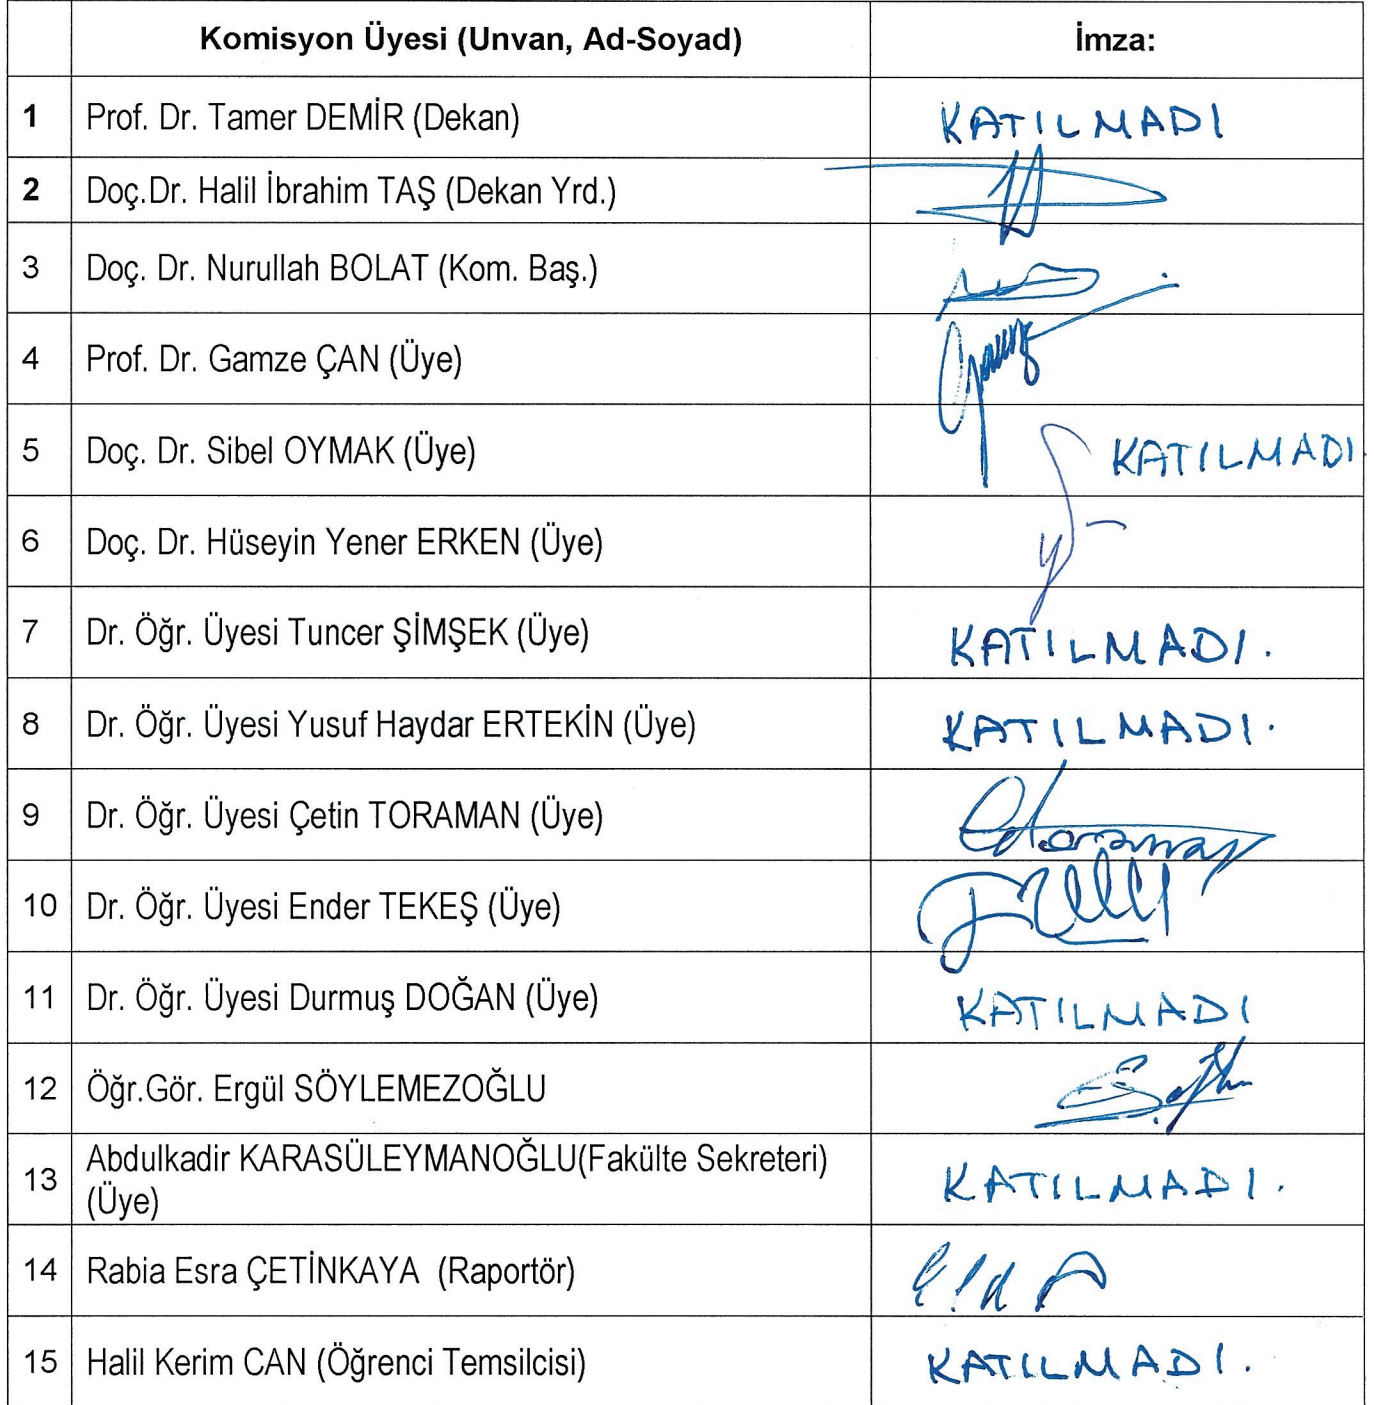 Komisyon Üyesi (Unvan, Ad-Soyad) İmza:
1 Prof. Dr. Tamer DEMİR (Dekan) KATILMADI
2 Doç.Dr. Halil İbrahim TAŞ (Dekan Yrd.)
3 Doç. Dr. Nurullah BOLAT (Kom. Baş.)
4 Prof. Dr. Gamze ÇAN (Üye)
5 Doç. Dr. Sibel OYMAK (Üye) KATILMADI.
6 Doç. Dr. Hüseyin Yener ERKEN (Üye)
7 Dr. Öğr. Üyesi Tuncer ŞİMŞEK (Üye) KATILMADI.
8 Dr. Öğr. Üyesi Yusuf Haydar ERTEKİN (Üye) KATILMADI.
9 Dr. Öğr. Üyesi Çetin TORAMAN (Üye)
10 Dr. Öğr. Üyesi Ender TEKEŞ (Üye)
11 Dr. Öğr. Üyesi Durmuş DOĞAN (Üye) KATILMADI
12 Öğr.Gör. Ergül SÖYLEMEZOĞLU
13 Abdulkadir KARASÜLEYMANOĞLU(Fakülte Sekreteri)
(Üye) KATILMADI.
14 Rabia Esra ÇETİNKAYA (Raportör)
15 Halil Kerim CAN (Öğrenci Temsilcisi) KATILMADI.